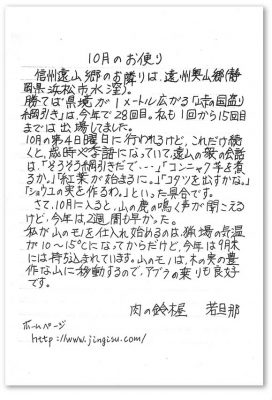 10月のお便り
信州遠山郷のお隣りは、遠州奥山郷(静
岡県浜松市水窪)。
勝てば県境が1メートル広がる「峠の国盗り
綱引き」は、今年で28回目。私も1回から15回目
までは出場してました。
10月の第4日曜日に行われるけど、これだけ続
くと、歳時季語になっていて、遠山の衆の会話
は、「そろそろ綱引きだで…」「コンニャク芋を煮
るか。」「紅葉が始まるに。」「コタツを出すかな。」
「ショウユの実を作るわ。」といった具合です。
さて、10月に入ると、山の鹿の鳴く声が聞こえる
けど、今年は、2週間も早かった。
私が山のモノを仕入れ始めるのは、猟場の気温
が10〜15℃になってからだけど、今年は9月末
には持ち込まれています。山のモノは、木の実の豊
作な山に移動するので、アブラの乗りも良好
です。
肉の鈴木屋 若旦那
ホームページ
http://www.jingisu.com/